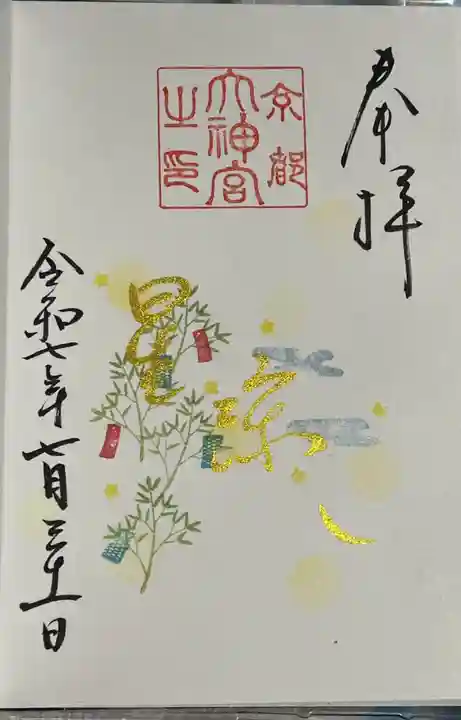 奉拝
京都
大神宮
之印
星
涼
令和七年七月三十一日